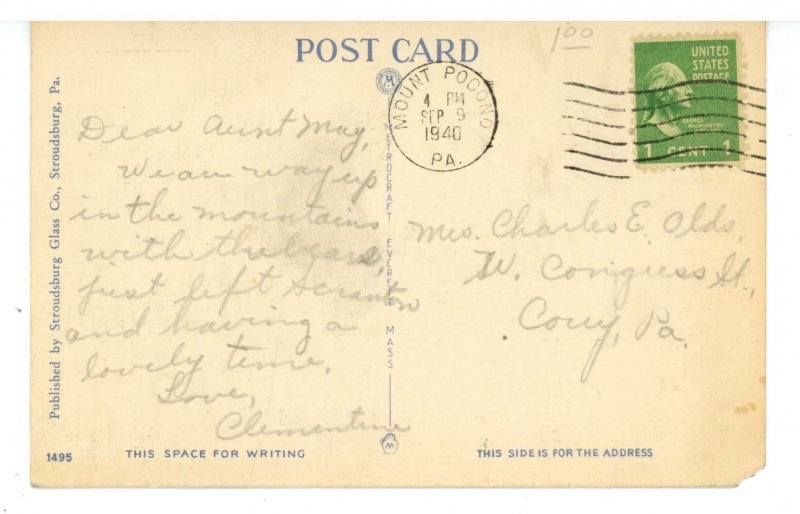 POST CARD
1.00
UNITED
STATES
POSTAGE
GEORGE
WASHINGTON
1 CENT 1
MOUNT POCONO
4 PM
SEP 9
1940
PA.
Published by Stroudsburg Glass Co., Stroudsburg, Pa.
Dear Aunt May,
We are way up
in the mountains
with the bears,
just left Scranton
and having a
lovely time.
Love,
Clementine
METROCRAFT EVERETT MASS
Mrs. Charles E. Olds.
W. Congress St.,
Corry, Pa.
1495
THIS SPACE FOR WRITING
THIS SIDE IS FOR THE ADDRESS